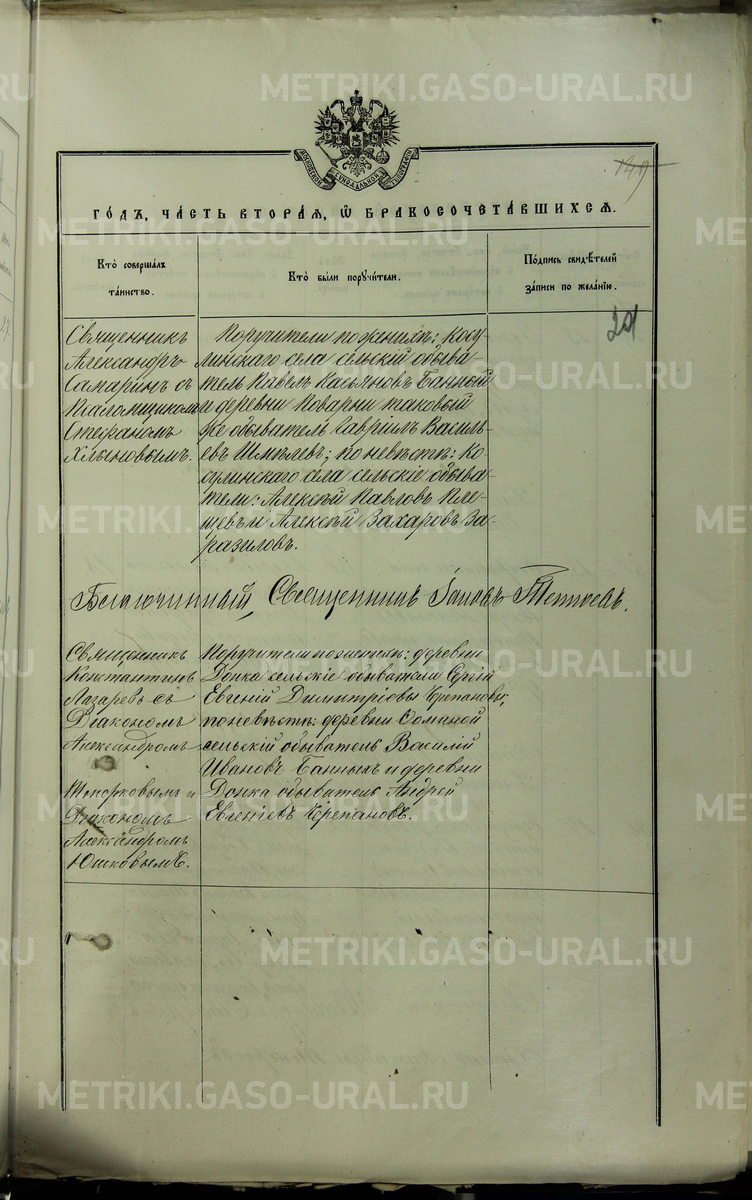 149
МОСКОВСКОЙ СѴНОДАЛЬНОЙ ТИПОГРАФІИ
ГО́ДЪ, ЧА́СТЬ ВТОРА́Я, Ѡ҆ БРАКОСОЧЕТА́ВШИХСЯ.
Кто̀ соверша́лъ
та́инство.
Кто̀ бы́ли порꙋчи́тели.
По́дпись свидѣ́телей
за́писи по жела́нїю.
29
Священникъ
Александръ
Самаринъ съ
Псаломщикомъ
Стефаномъ
Хлыновымъ.
Поручители по женихѣ: Косу-
линскаго села сельскій обыва-
тель Павелъ Касьяновъ Банный
и деревни Поварни таковый
же обыватель Гавріилъ Василь-
евъ Шмелевъ; по невѣстѣ: Ко-
сулинскаго села сельскіе обыва-
тели: Алексѣй Павловъ Пле-
щевъ и Алексѣй Захаровъ За-
разиловъ.
Благочинный, Священникъ
Священникъ
Константинъ
Лазаревъ съ
Діакономъ
Александромъ
Топорковымъ и
Діакономъ
Александромъ
Юшковымъ.
Поручители по женихѣ: деревни
сельскіе обыватели Сергій
Евгеній Димитріевы Черепановы,
по невѣстѣ: деревни
сельскій обыватель Василій
Ивановъ Банныхъ и деревни
обыватель Андрей
Евгеніевъ Черепановъ.
METRIKI.GASO-URAL.RU